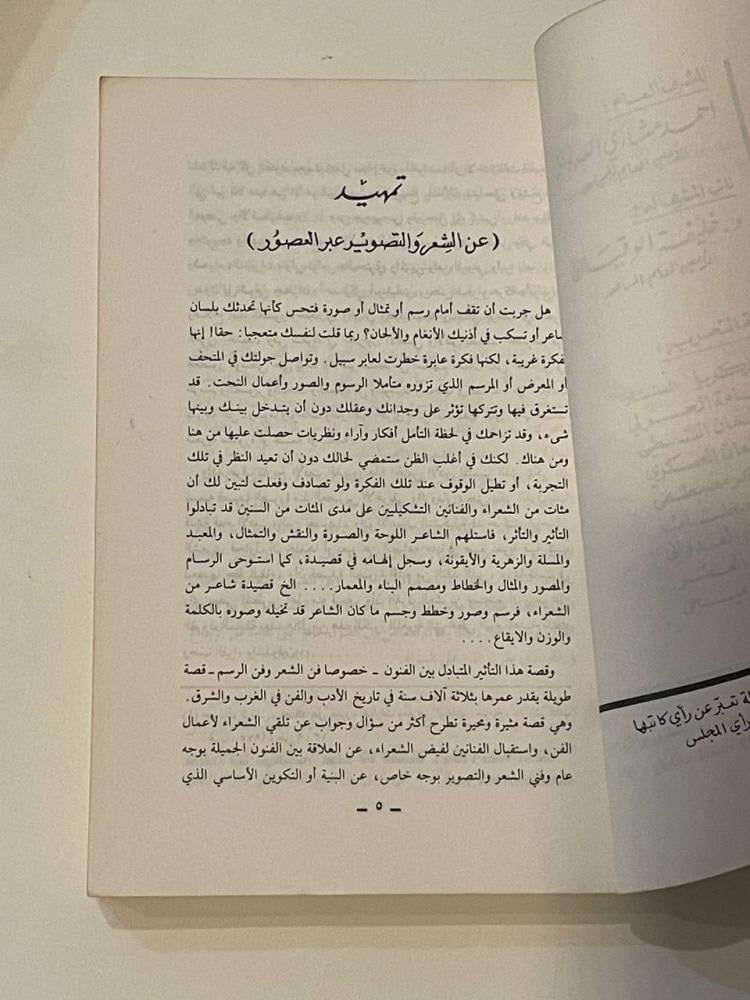 تمهيد
(عن الشعر والتصوير عبر العصور)
هل جربت أن تقف أمام رسم أو تمثال أو صورة فتحس كأنها تحدثك بلسان
أو تسكب في أذنيك الأنغام والألحان؟ ربما قلت لنفسك متعجبا: حقا! إنها
لفكرة غريبة، لكنها فكرة عابرة خطرت لعابر سبيل. وتواصل جولتك في المتحف
أو المعرض أو المرسم الذي تزوره متأملا الرسوم والصور وأعمال النحت. قد
تستغرق فيها وتتركها تؤثر على وجدانك وعقلك دون أن يتدخل بينك وبينها
شيء، وقد تزاحمك في لحظة التأمل أفكار وآراء ونظريات حصلت عليها من هنا
ومن هناك. لكنك في أغلب الظن ستمضي لحالك دون أن تعيد النظر في تلك
التجربة، أو تطيل الوقوف عند تلك الفكرة ولو تصادف وفعلت لتبين لك أن
مئات من الشعراء والفنانين التشكيليين على مدى المئات من السنين قد تبادلوا
التأثير والتأثر، فاستلهم الشاعر اللوحة والصورة والنقش والتمثال، والمعبد
والمسلة والزهرية والأيقونة، وسجل إلهامه في قصيدة، كما استوحى الرسام
والمصور والمثال والخطاط ومصمم البناء والمعمار.... الخ قصيدة شاعر من
الشعراء، فرسم وصور وخطط وجسم ما كان الشاعر قد تخيله وصوره بالكلمة
والوزن والايقاع....
وقصة هذا التأثير المتبادل بين الفنون - خصوصا فن الشعر وفن الرسم - قصة
طويلة يقدر عمرها بثلاثة آلاف سنة في تاريخ الأدب والفن في الغرب والشرق.
وهي قصة مثيرة ومحيرة تطرح أكثر من سؤال وجواب عن تلقي الشعراء لأعمال
الفن، واستقبال الفنانين لفيض الشعراء، عن العلاقة بين الفنون الجميلة بوجه
عام وفني الشعر والتصوير بوجه خاص، عن البنية أو التكوين الأساسي الذي
- ٥ -
تعبّر عن رأي كاتبها
رأي المجلس